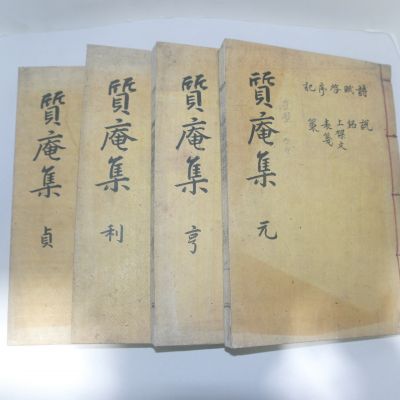 詩賦啓序記
說
銘
上樑文
表箋
策
質庵集 元
質庵集 亨
質庵集 利
質庵集 貞